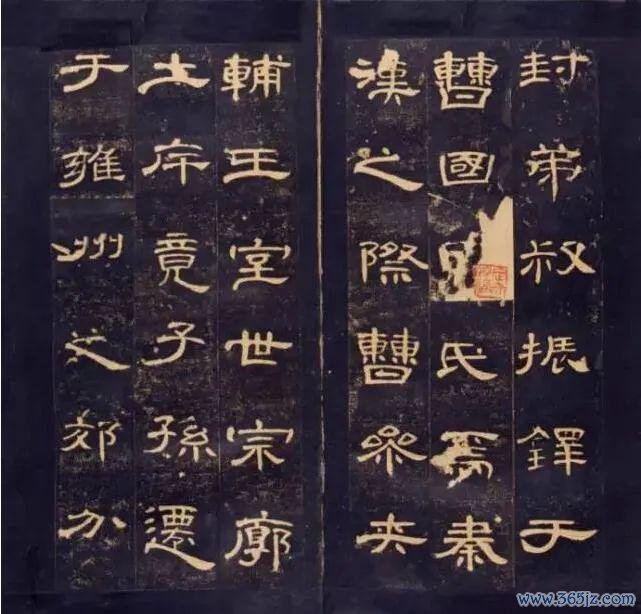 封弟叔振鐸于
曹國氏焉秦
漢之際曹參夾
輔王室世宗廓
土斥竟子孫遷
于雍州之郊分
www.365jz.com